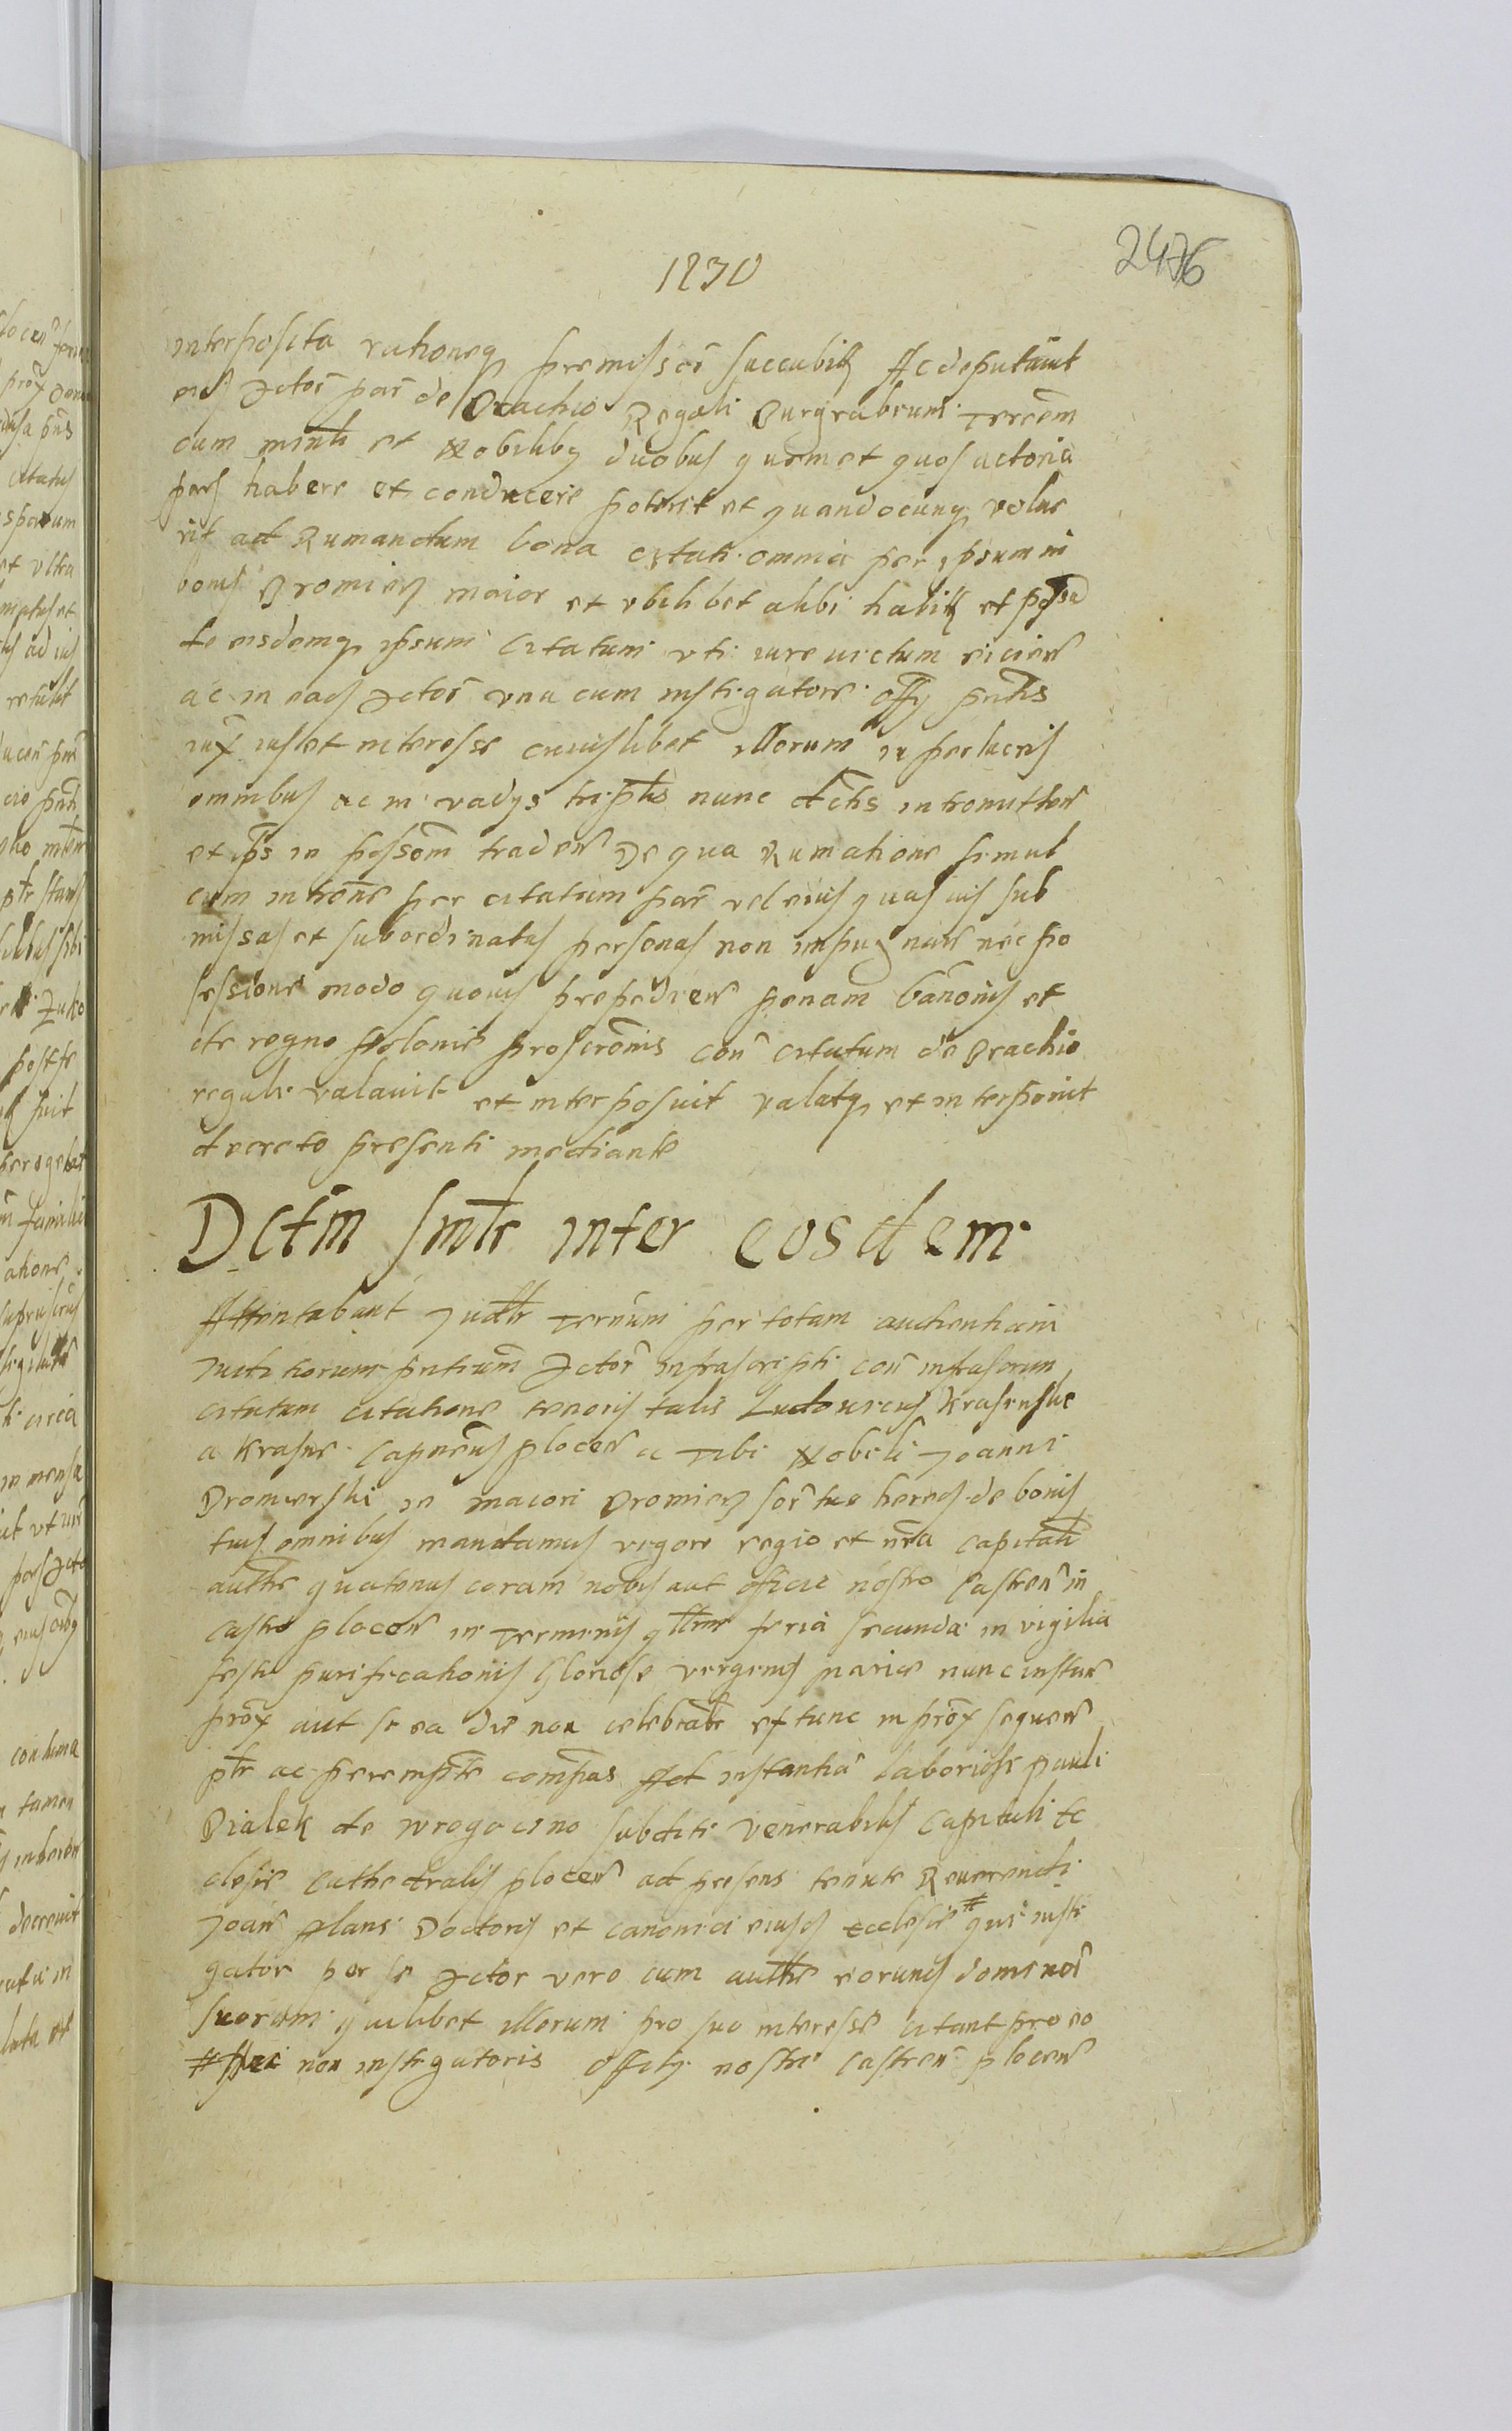 1230
2476
interposita rationeq premissor succubitz Ac deputavit
eid Actor par de Brachio Regali Burgrabium Terrem
cum minli et Nobilibq duobus quem et quos actoria
pars habere et conducere poterit et quandocunq volue
rit ad Rumandum bona citati omnia per ipsum in
bonis Dromierz maior et ubilibet alibi habitz et possa
de eisdemq ipsum Citatum uti iure victum eicien
ac in eads Actor una cum instigatore offy pntis
iux ius et interesse cuiuslibet illorum in perlucris
omnibus ac in vadys triplis nunc dctis intromitten
et ips in possom traden De qua Rumatione simul
cum introne per citatum par vel eius quasvis sub
missas et subordinatas personas non impugnan nec po
sessione modo quovis prepedien penam banonis et
de regno polonie proscronis con Citatum de Brachio
regali valavit et interposuit valatq et interponit
decreto presenti mediante
Dctm smlr inter eosdem
Attentabant Judlr Ternum per totam audientiam
Juditiorum pntium Actor infrascripti con infrascrum
citatum citatione tenoris talis Ludovicus Krasinski
a Krasne Capneus plocen a Tibi Nobili Joanni
Dromierski in maiori Dromierz sor tue heres de bonis
tuis omnibus mandamus vigore regio et nra capitali
authe quatenus coram nobis aut officio nostro Castren in
castro plocen in Terminis qllme feria secunda in vigilia
festi purificationis Gloriose virginis marie nunc instan
prox aut si ea die non celebrabr ex tunc in prox sequen
plr ac peremptre compas Ad instantia Laboriosi pauli
Bialek de wrogocino subditi Venerabilis Capituli Ec
clesie Cathedralis plocen ad presens tenute Reverendi
Joan plans Doctoris et canonici eiusd ecclesie # qui insti
gator per se Actor vero cum authe eorund dominor
suorum quilibet illorum pro suo interesse citant pro eo
# nec non instigatoris officy nostri castren plocen